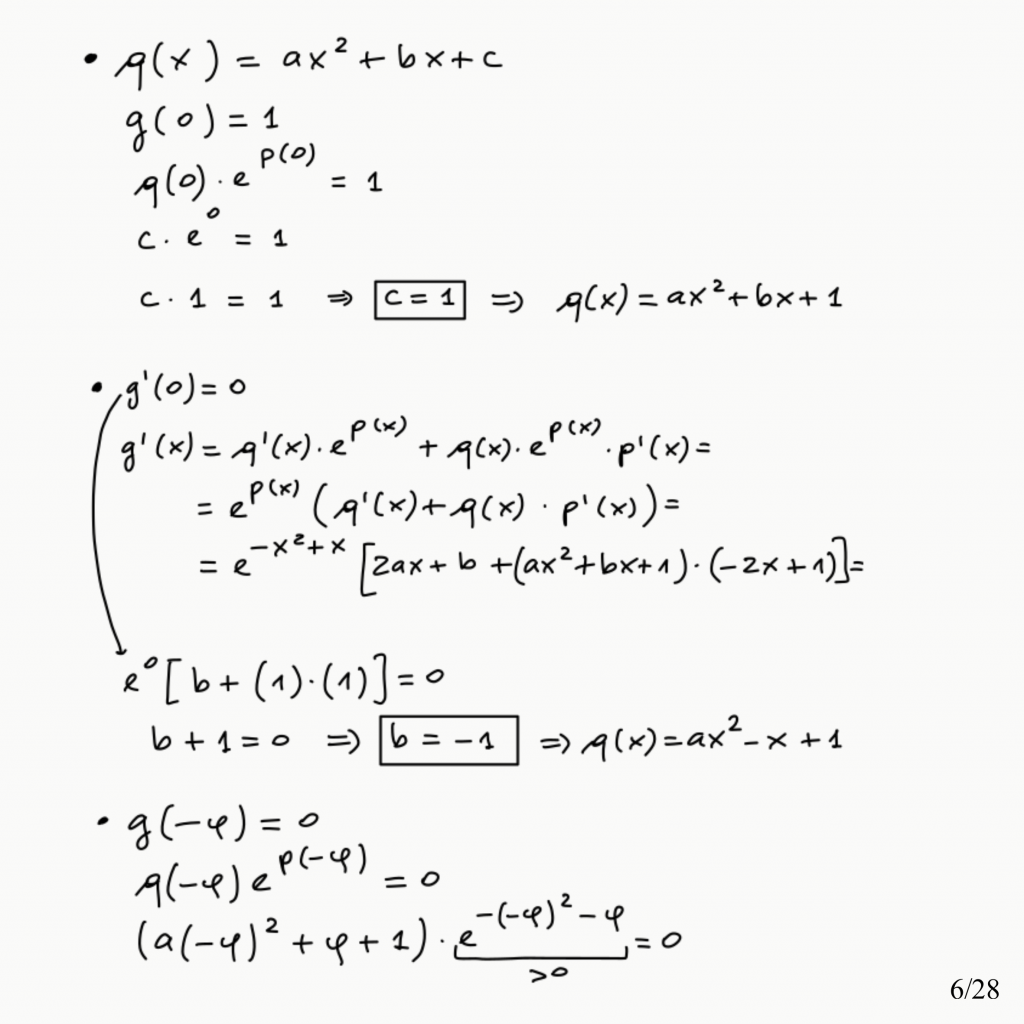 • q(x) = ax² + bx + c
g(0) = 1
q(0) · e^p(0) = 1
c · e^0 = 1
c · 1 = 1 ⇒ c = 1 ⇒ q(x) = ax² + bx + 1
• g'(0) = 0
g'(x) = q'(x) · e^p(x) + q(x) · e^p(x) · p'(x) =
= e^p(x) (q'(x) + q(x) · p'(x)) =
= e^(-x²+x) [2ax + b + (ax² + bx + 1) · (-2x + 1)] =
e^0 [b + (1) · (1)] = 0
b + 1 = 0 ⇒ b = -1 ⇒ q(x) = ax² - x + 1
• g(-φ) = 0
q(-φ) e^p(-φ) = 0
(a(-φ)² + φ + 1) · e^(-(-φ)² - φ) = 0
>0
6/28